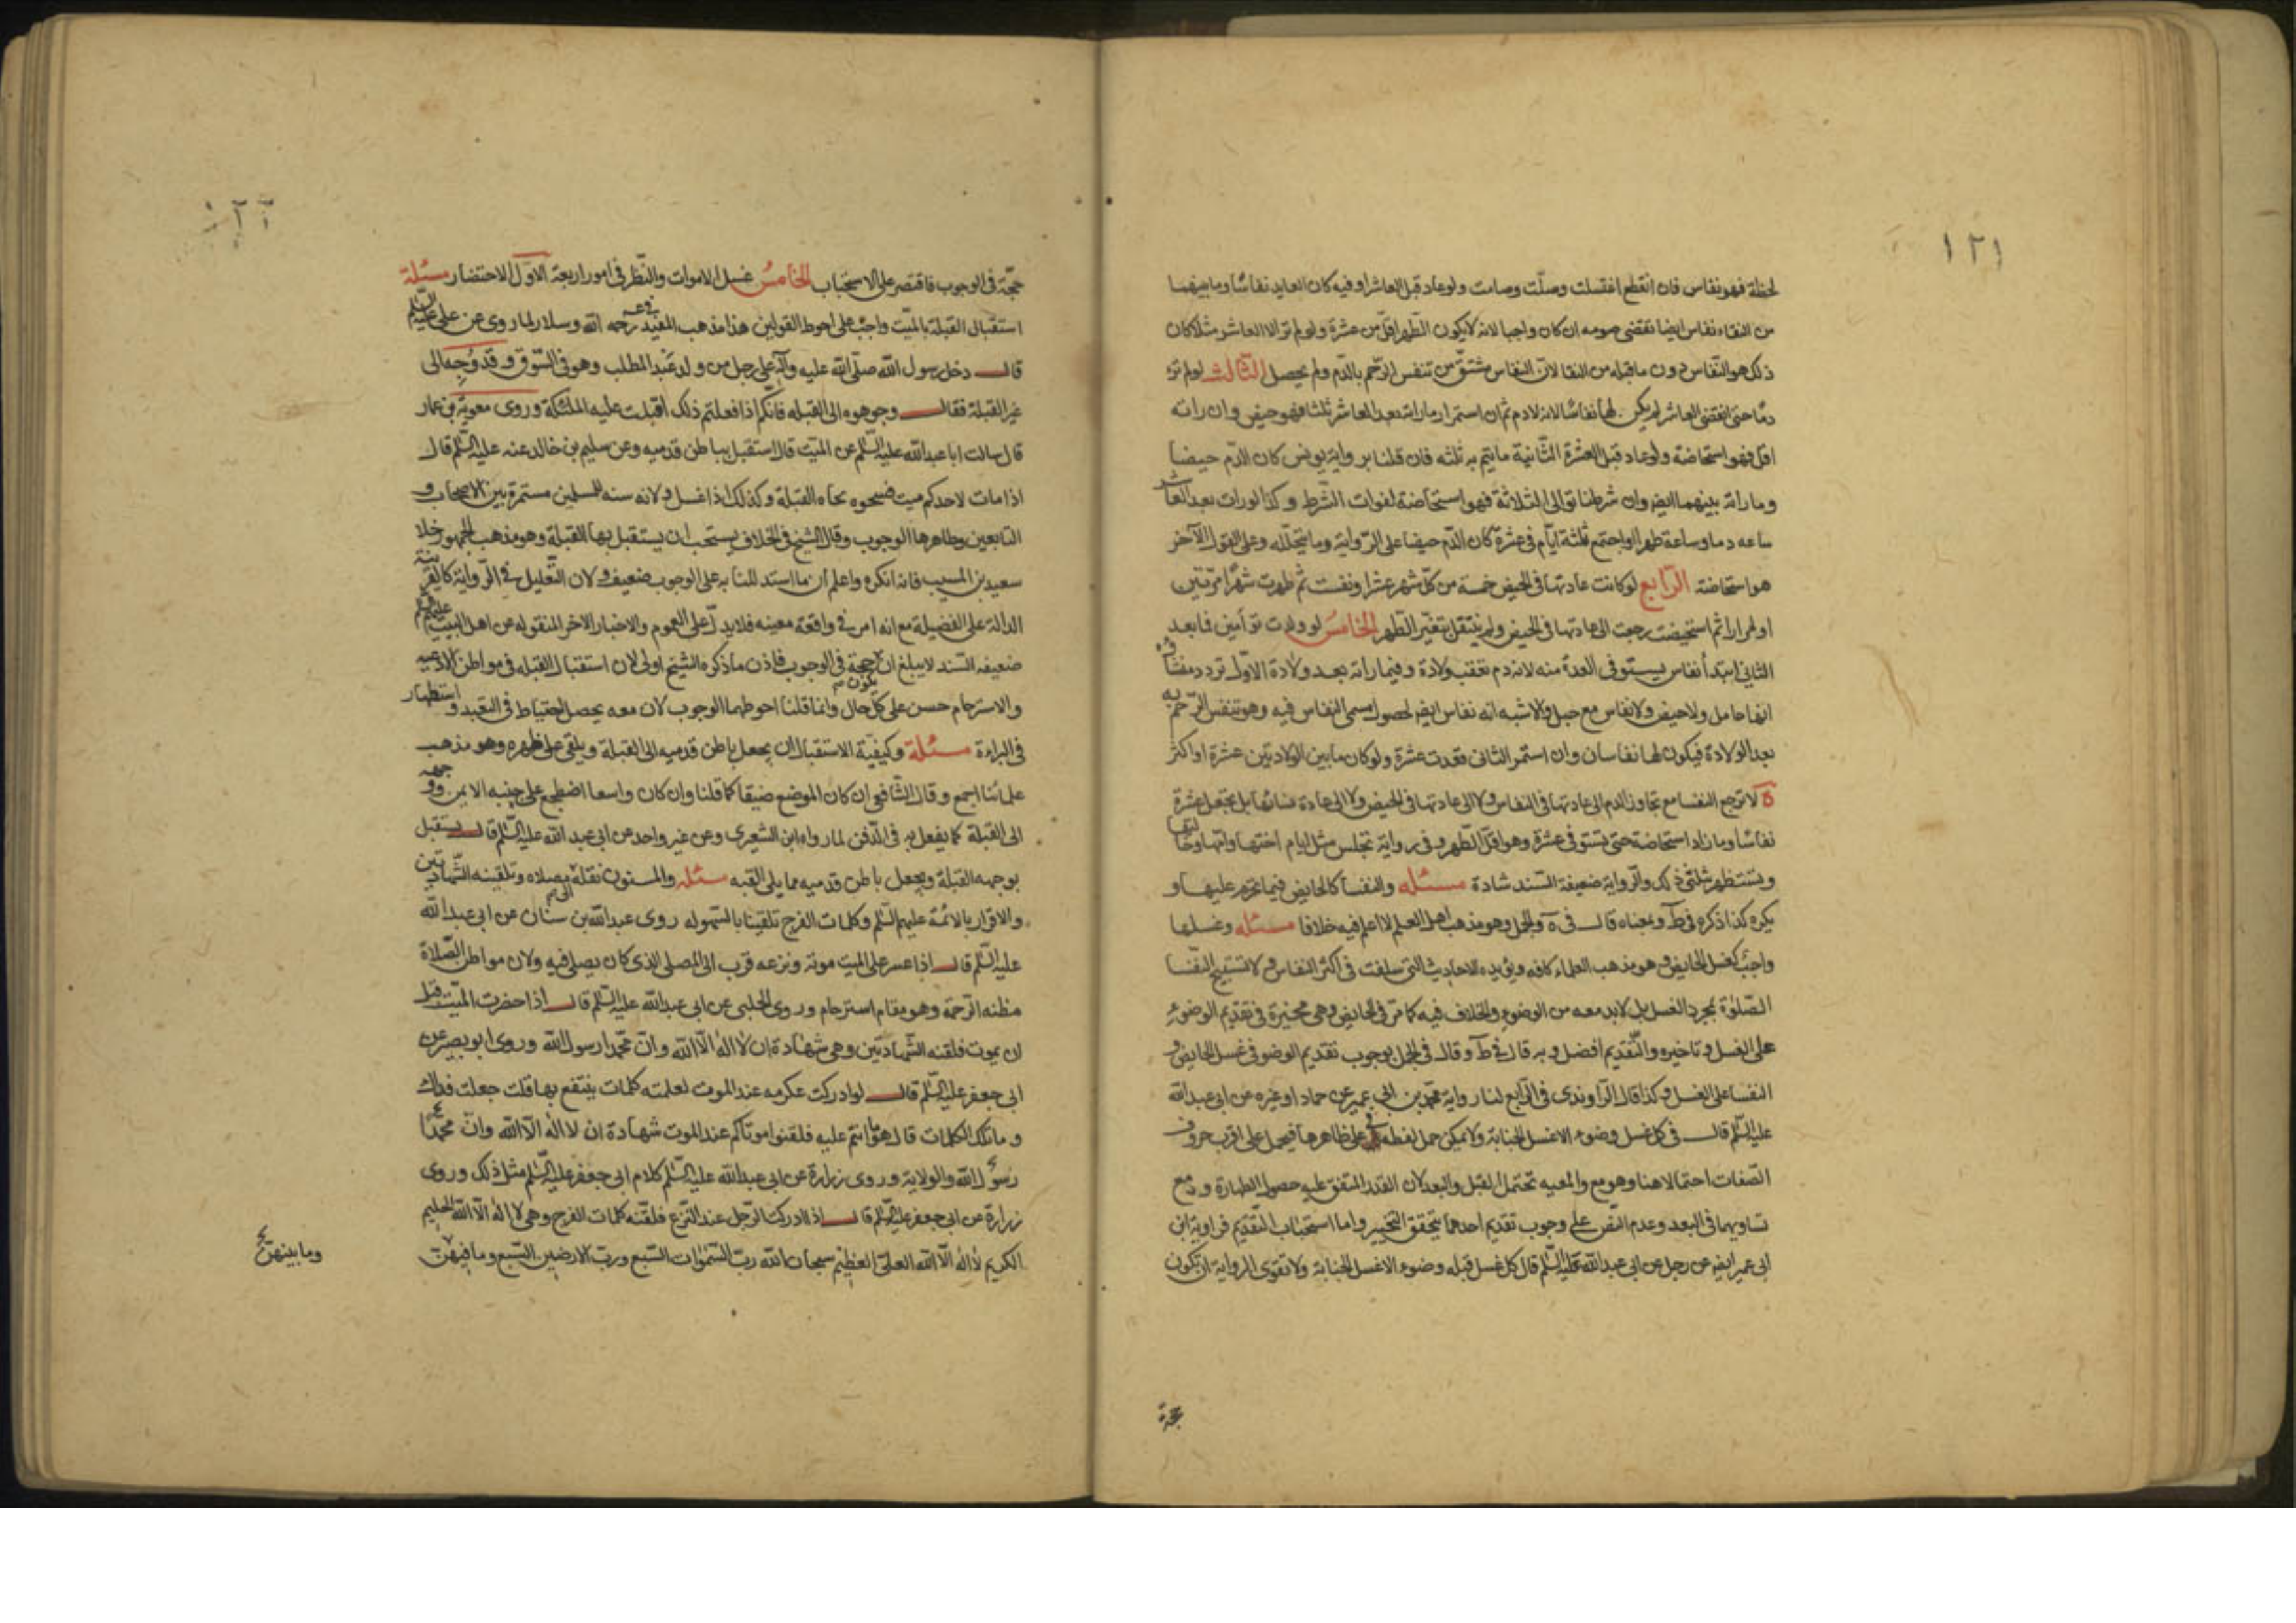 ١٢١
لحظة فهو نفاس فان انقطع اغتسلت وصلّت وصامت ولو عاد قبل العاشر او فيه كان العايد نفاسًا وما بينهما
من النقاء نفاس ايضا تقضى صومه ان كان واجبا لانه لا يكون الطهر اقلّ من عشرة ولو لم تر الا العاشر مثلا كان
ذلك هو النّفاس دون ما قبله من النقا لانّ النفاس مشتقّ من تنفس الرّحم بالدّم ولم يحصل الثالث لو لم تر
دمًا حتى انقضى العاشر لم يكن لها نفاسًا لانه لا دم ثم ان استمر ما راته بعد العاشر ثلثا فهو حيض وان راته
اقل فهو استحاضة ولو عاد قبل العشرة الثّانية ما يتم به ثلثه فان قلنا برواية يونس كان الدّم حيضا
وما راته بينهما ايضه وان شرطنا توالى الثلاثة فهو استحاضة لفوات الشّرط وكذا لو رات بعد العاشر
ساعه دما وساعة طهرا واجتمع ثلثة ايّام فى عشرة كان الدّم حيضا على الرّواية وما يتخلّله وعلى القول الآخر
هو استحاضة الرّابع لو كانت عادتها فى الحيض خمسة من كلّ شهر عشرا ونفست ثم طهرت شهرًا مرّتين
او مرارا ثم استحيضت رجعت الى عادتها فى الحيض ولم ينتقل بتغيّر الطّهر الخامس لو ولدت توأمين فما بعد
الثانى ابتدأ نفاس يستوفى العدة منه لانه دم تعقب ولادة وفيما راته بعد ولادة الاوّل تردد منشأه
انها حامل ولا حيض ولا نفاس مع حبل والاشبه انه نفاس ايضه لحصول مسمى النفاس فيه وهو تنفس الرّحم به
بعد الولادة فيكون لها نفاسان وان استمر الثانى فقدت عشرة ولو كان ما بين الولادتين عشرة او اكثر
ة لا ترجع النفسا مع تجاوز الدم الى عادتها فى النفاس ولا الى عادتها فى الحيض ولا الى عادة نسائها بل تجعل عشرة
نفاسًا وما زاد استحاضة حتى تستوفى عشرة وهو اقلّ الطهر وفى رواية تجلس مثل ايام اختها وامّها وخالتها
وتستظهر بثلثى ذلك والرّواية ضعيفة السّند شاذة مسئله والنفسا كالحايض فيما يحرم عليها و
يكره كذا ذكره فى ط وبمعناه قال فى ة والجمل وهو مذهب اهل العلم لا اعلم فيه خلافا مسئله وغسلها
واجبٌ كغسل الحايض وهو مذهب العلماء كافه ويؤيده الاحاديث التى سلفت فى اكثر النفاس ولا تستبيح النّفسا
الصّلوة بمجرد الغسل بل لابد معه من الوضوء والخلاف فيه كما مرّ فى الحايض وهى مخيّرة فى تقديم الوضوء
على الغسل وتاخيره والتّقديم افضل وبه قال فى ط وقال فى الجمل بوجوب تقديم الوضو فى غسل الحايض و
النفسا على الغسل وكذا قال الرّاوندى فى الرّابع لنا رواية محمّد بن ابى عمير عن حماد او غيره عن ابى عبد الله
عليه السّلم قال فى كل غسل وضوء الا غسل الجنابة ولا يمكن حمل لفظه فى على ظاهرها فيحمل على اقرب حروف
الصّفات احتمالا هنا وهو مع والمعيه تحتمل القبل والبعد لان القدر المتفق عليه حصول الطهارة ومع
تساويهما فى البعد وعدم النّص على وجوب تقديم احدهما يتحقق التخيير واما استحباب التّقديم فراوية ابن
ابى عمير ايضه عن رجل عن ابى عبد الله عليه السّلم قال كل غسل قبله وضوء الا غسل الجنابة ولا تقوى الرواية ان تكون
حجة
حجّة فى الوجوب فاقتصر على الاستحباب الخامسُ غسل الاموات والنّظر فى امور اربعة الاوّل الاحتضار مسئلة
استقبال القبلة بالميّت واجبٌ على احوط القولين هذا مذهب المفيد رحمه الله وسلار لما روى عن على عليه السّلم
قال دخل رسول الله صلّى الله عليه وآله على رجل من ولد عبد المطلب وهو فى السّوق وقد وُجه الى
غير القبلة فقال وجوهوه الى القبله فانكم اذا فعلتم ذلك اقبلت عليه الملئكة وروى معوية بن عمار
قال سالت ابا عبد الله عليه السّلم عن الميّت قال استقبل بباطن قدميه وعن سليم بن خالد عنه عليه السّلم قال
اذا مات لاحدكم ميت فسجوه تجاه القبلة وكذلك اذا غسل ولانه سنه للمسلمين مستمرة بين الاصحاب و
التابعين وظاهرها الوجوب وقال الشيخ فى الخلاف يستحب ان يستقبل بها القبلة وهو مذهب الجمهور خلا
سعيد بن المسيب فانه انكره واعلم ان ما استدللنا به على الوجوب ضعيف ولان التّعليل فى الرّواية كالقرينة
الدالة على الفضيلة مع انه امر فى واقعة معينه فلا يدلّ على العموم والاخبار الاخر المنقوله عن اهل البيت عليهم السّلم
ضعيفه السّند لا يبلغ ان يكون حجة فى الوجوب فاذن ما ذكره الشيخ اولى لان استقبال القبله فى مواطن الادعيه
والاسترحام حسن على كل حال وانما قلنا احوطهما الوجوب لان معه يحصل احتياط فى التعبد واستظهار
فى البراءة مسئلة وكيفية الاستقبال ان يجعل باطن قدميه الى القبلة ويلقى على ظهره وهو مذهب
علمائنا اجمع وقال الشّافعى ان كان الموضع ضيقا كما قلنا وان كان واسعا اضطجع على جنبه الايمن ووجهه
الى القبلة كما يفعل به فى الدّفن لما رواه ابن الشعيرى وعن غير واحد عن ابى عبد الله عليه السّلم قال يستقبل
بوجهه القبلة ويجعل باطن قدميه مما يلى القبه مسئله والمسنون نقله الى مصلاه وتلقينه الشّهادتين
والاقرار بالائمّة عليهم السّلم وكلمات الفرج تلقينا بالسّهوله روى عبد الله بن سنان عن ابى عبد الله
عليه السّلم قال اذا عسر على الميت موته ونزعه قرب الى المصلى الذى كان يصلى فيه ولان مواطن الصّلاة
مظنه الرّحمة وهو مقام استرحام وروى الحلبى عن ابى عبد الله عليه السّلم قال اذا حضرت الميّت قبل
ان يموت فلقنه الشّهادتين وهى شهادة ان لا اله الّا الله وانّ محمّدا رسول الله وروى ابو بصير عن
ابى جعفر عليه السّلم قال لو ادركت عكرمه عند الموت لعلمته كلمات ينتفع بها قلت جعلت فداك
وما تلك الكلمات قال هو ما انتم عليه فلقنوا موتاكم عند الموت شهادة ان لا اله الّا الله وانّ محمّدًا
رسول الله والولاية وروى زرارة عن ابى عبد الله عليه السّلم كلام ابى جعفر عليه السّلم مثل ذلك وروى
زرارة عن ابى جعفر عليه السّلم قال اذا ادركت الرّجل عند النّزع فلقنه كلمات الفرج وهى لا اله الّا الله الحليم
الكريم لا اله الّا الله العلىّ العظيم سبحان الله ربّ السّموات السّبع وربّ الارضين السّبع وما فيهنّ
وما بينهنّ